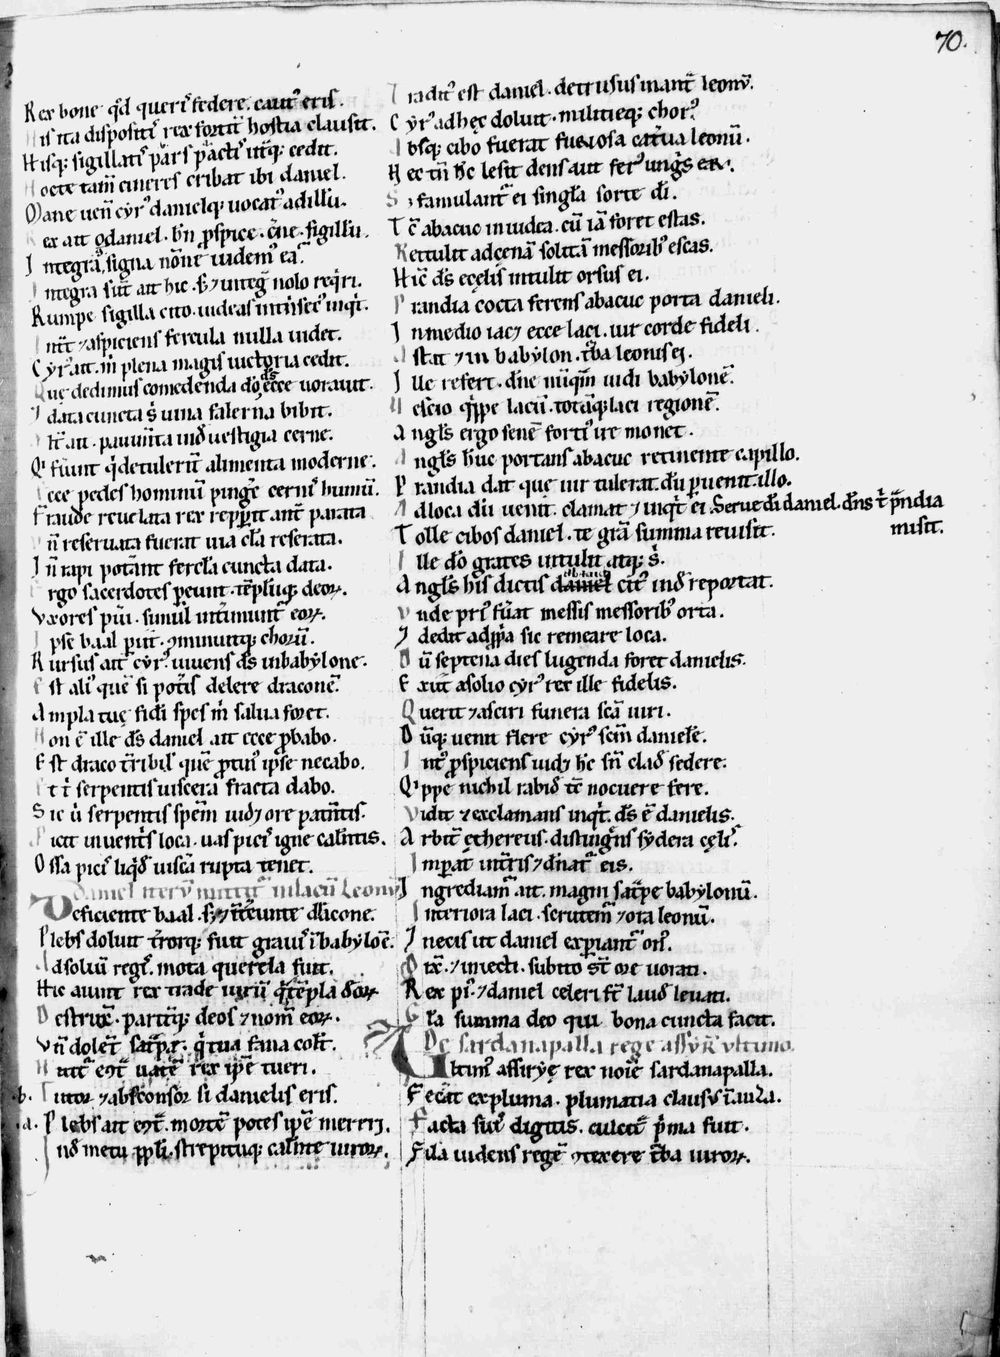 70.
Rex bone qd querisꝰ federe. cautꝰ eris.
His ita dispositis rex fortit̄ hostia clausit.
Hisq; sigillatis pars p̄acti ut̄q; cedit.
Nocte tam̄ cineres cribat ibi daniel.
Mane uen̄ cyrꝰ danielq; uocatꝰ ad illū.
Rex ait o daniel. bn̄ ꝓspice. c̄ne. sigillū.
Integra, signa nōne uidem̄ ea.
Integra sūt ait hic. sꝫ ⁊ inteḡ nolo req̄ri.
Rumpe sigilla cito. uideas int̄insecꝰ inq̇t.
Int̄t ⁊ aspiciens fercula nulla uidet.
Cyrꝰ ait. m̄ plena magis uictoria cedit.
Quę dedimus comedenda dō ds̄ ecce uorauit.
⁊ data cuncta s̄ uina falerna bibit.
Int̄ ait. pauim̄ta in̄d uestigia cerne.
Q' fūunt q̇ detulerūt alimenta moderne.
Ecce pedes hominū pinḡe cernis humū.
Fraude reuelata rex repp̄it ant̄ parata
Vn̄ reseruata fuerat uia cl̄a reserata.
In̄ rapi potant fercl̄a cuncta data.
Ergo sacerdotes ꝑeunt. tēpliq; deoꝝ.
Vxores pūi. simul int̄imunt̄ eoꝝ.
Ipse baal ꝑiit. ⁊ minuitq; chorū.
Rursus ait cyrꝰ. uiuens ds̄ in babylone.
Est aliꝰ quē si potis delere draconē.
Ampla tuę fidi spes m̄ salua foret.
Non ē ille ds̄ daniel ait ecce ꝓbabo.
Est draco t̄ribil' quē ꝓtinꝰ ipse necabo.
Et t̄ serpentis uiscera fracta dabo.
Sic ū serpentis spēm uidꝫ ore patn̄tis.
Picit uiuent̄s loca. uas picis igne caln̄tis.
Ossa picis liq̇d uiscā rupta tenet.
Daniel iterū mittit̄ in lacū Leonū
Deficiente baal. sꝫ ⁊ īteunte dracone.
Plebs doluit t̄rorq; fuit grauis ī babyloē.
Ad soliū regꝭ mota querela fuit.
Hic aiunt rex trade uirū q̇ tēpla dōꝝ
Destrux̄. partitq; deos ⁊ nom̄ eoꝝ.
Vn̄ dolet̄ sat̄pꝭ. q̄ tua fana col̄t.
Natat̄ eqt̄ uatē rex ip̄e tueri.
.b. Tutor ⁊ abscōsor si danielis eris.
.a. Plebs ait eqt̄. mortē potes ip̄e mereri.
Ind̄ metu pp̄li. strepituq; caln̄te uiroꝝ.
Traditꝰ est daniel. detrusus in ant̄ leonū.
Cyrꝰ ad hęc doluit. militieq; chorꝰ.
Absq; cibo fuerat furiosa cat̄ua leonū.
Hec tn̄ h̄c lesit dens aut ferꝰ ung̣s eꝝ.
S; famulant̄ ei singl̄a sorte di.
Tc̄ abacuc in iudea. cū iā foret estas.
Rettulit ad cenā solitā messoribꝰ escas.
Hic ds̄ ecęlis intulit orsus ei.
Prandia cocta ferens abacuc porta danieli.
In medio iacꝫ ecce laci. uir corde fideli.
Astat ⁊ in babylon. t̄ba leonis ei.
Ille refert. dn̄e nūq̄m uidi babylonē.
Nescio q̄ppe lacū. totāq; laci regionē.
Angl̄s ergo senē fortiꝰ ire monet.
Angl̄s h̄uc portans abacuc retinente capillo.
Prandia dat quę uir tulerat dū ꝑuenit illo.
Ad loca dū uenit. clamat ⁊ inq̇t ei. Serue dī daniel. dn̄s t̄ p̄ndia
misit.
Tolle cibos daniel. te grā summa reuisit.
Ille dō grates intulit atq; s̄.
Angl̄s his dictis daniel abbacuc citꝰ ind̄ reportat.
Vnde priꝰ fūat messis messoribꝰ orta.
⁊ dedit ad ꝓp̄a sic remeare loca.
Dū septena dies lugenda foret danielis.
Exiit a solio cyrꝰ rex ille fidelis.
Querit ⁊ asciri funera scā uiri.
Dūq; uenit flere cyrꝰ scm̄ danielē.
Intꝰ ꝓspiciens uidꝫ h̄c sn̄ clad̄ sedere.
Q'ppe nichil rabid̄ tē nocuere fere.
Vidit ⁊ exclamans inq̇t. ds̄ ē danielis.
Arbit̄ ęthereus. distingn̄s sydera cęlis.
Imp̄at int̄ris ⁊ dn̄at̄ eis.
Ingrediam̄ ait. magni sat̄pe babylonū.
Interiora laci. scrutem̄ ⁊ ora leonū.
⁊ necis ut daniel exp̄iant̄ onꝰ.
Dix̄. ⁊ iniecti. subito st̄ ore uorati.
Rex piꝰ. ⁊ daniel celeri fc̄t laud̄ leuati.
Gr̄a summa deo qui bona cuncta facit.
De sardanapalla rege assyrꝭ vltimo.
Vltimꝰ assiryę rex noīe sardanapalla.
Fec̄at ex pluma. plumatia clausꝰ ī aula.
Facta suis digitis. culcit̄ p̄ma fuit.
Fila uidens regē ⁊ texere t̄ba uiroꝝ.